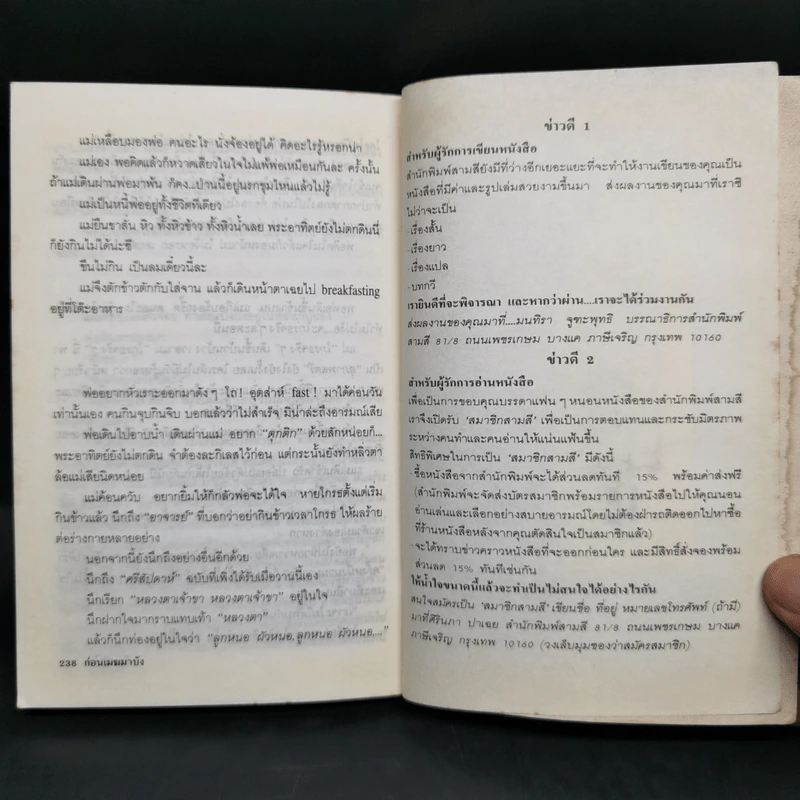 แม่เหลือบมองพ่อ คนอะไร นั่งจ้องอยู่ได้ คิดอะไรรู้หรอกน่า
แม่เอง พอคิดแล้วก็หวาดเสียวในใจไม่แพ้พ่อเหมือนกันละ ครั้งนั้น
ถ้าแม่เดินผ่านพ่อมาพ้น ก็คง...ป่านนี้อยู่นรกขุมไหนแล้วไม่รู้
แม่เป็นหนี้พ่ออยู่ทั้งชีวิตทีเดียว
แม่ยืนขาสั่น หิว ทั้งหิวข้าว ทั้งหิวน้ำเลย พระอาทิตย์ยังไม่ตกดินนี่
ก็ยังกินไม่ได้น่ะซี
ขืนไม่กิน เป็นลมเดี๋ยวนี้ละ
แม่จึงตักข้าวตักกับใส่จาน แล้วก็เดินหน้าตาเฉยไป breakfasting
อยู่ที่โต๊ะอาหาร
พ่ออยากหัวเราะออกมาดังๆ โถ! อุตส่าห์ fast! มาได้ค่อนวัน
เท่านั้นเอง คนกินจุบกินจิบ บอกแล้วว่าไม่สำเร็จ มีน่าล่ะถึงอารมณ์เสีย
พ่อเดินไปอาบน้ำ เดินผ่านแม่ อยาก "ตุกติก" ด้วยสักหน่อยก็...
พระอาทิตย์ยังไม่ตกดิน จำต้องละกิเลสไว้ก่อน แต่กระนั้นยังทำหลิ่วตา
ล้อแม่เสียนิดหน่อย
แม่ค้อนควับ อยากยิ้มให้ก็กลัวพ่อจะได้ใจ หายโกรธตั้งแต่เริ่ม
กินข้าวแล้ว นึกถึง "อาจารย์" ที่บอกว่าอย่ากินข้าวเวลาโกรธ ให้ผลร้าย
ต่อร่างกายหลายอย่าง
นอกจากนี้ยังนึกถึงอย่างอื่นอีกด้วย
นึกถึง "ศรีสัปดาห์" ฉบับที่เพิ่งได้รับเมื่อวานนี้เอง
นึกเรียก "หลวงตาเจ้าขา หลวงตาเจ้าขา" อยู่ในใจ
นึกฝากใจมากราบแทบเท้า "หลวงตา"
แล้วก็นึกท่องอยู่ในใจว่า "ลูกหนอ ผัวหนอ, ลูกหนอ ผัวหนอ,..."
238 ก่อนเมฆมาบัง
ข่าวดี 1
สำหรับผู้รักการเขียนหนังสือ
สำนักพิมพ์สามสียังมีที่ว่างอีกเยอะแยะที่จะทำให้งานเขียนของคุณเป็น
หนังสือที่มีค่าและรูปเล่มสวยงามขึ้นมา ส่งผลงานของคุณมาที่เราซิ
ไม่ว่าจะเป็น
·เรื่องสั้น
·เรื่องยาว
·เรื่องแปล
·บทกวี
เรายินดีที่จะพิจารณา และหากว่าผ่าน...เราจะได้ร่วมงานกัน
ส่งผลงานของคุณมาที่....มนทิรา จูฑะพุทธิ บรรณาธิการสำนักพิมพ์
สามสี 81/8 ถนนเพชรเกษม บางแค ภาษีเจริญ กรุงเทพ 10160
ข่าวดี 2
สำหรับผู้รักการอ่านหนังสือ
เพื่อเป็นการขอบคุณบรรดาแฟนๆ หนอนหนังสือของสำนักพิมพ์สามสี
เราจึงเปิดรับ 'สมาชิกสามสี' เพื่อเป็นการตอบแทนและกระชับมิตรภาพ
ระหว่างคนทำและคนอ่านให้แน่นแฟ้นขึ้น
สิทธิพิเศษในการเป็น 'สมาชิกสามสี' มีดังนี้
·ซื้อหนังสือจากสำนักพิมพ์จะได้ส่วนลดทันที 15% พร้อมค่าส่งฟรี
(สำนักพิมพ์จะจัดส่งบัตรสมาชิกพร้อมรายการหนังสือไปให้คุณนอน
อ่านเล่นและเลือกอย่างสบายอารมณ์โดยไม่ต้องฝ่ารถติดออกไปหาซื้อ
ที่ร้านหนังสือหลังจากคุณตัดสินใจเป็นสมาชิกแล้ว)
·จะได้ทราบข่าวคราวหนังสือที่จะออกก่อนใคร และมีสิทธิ์สั่งจองพร้อม
ส่วนลด 15% ทันทีเช่นกัน
ให้น้ำใจขนาดนี้แล้วจะทำเป็นไม่สนใจได้อย่างไรกัน
สนใจสมัครเป็น 'สมาชิกสามสี' เขียนชื่อ ที่อยู่ หมายเลขโทรศัพท์ (ถ้ามี)
มาที่ศิรินภา ปาเฉย สำนักพิมพ์สามสี 81/8 ถนนเพชรเกษม บางแค
ภาษีเจริญ กรุงเทพ 10160 (วงเล็บมุมซองว่าสมัครสมาชิก)